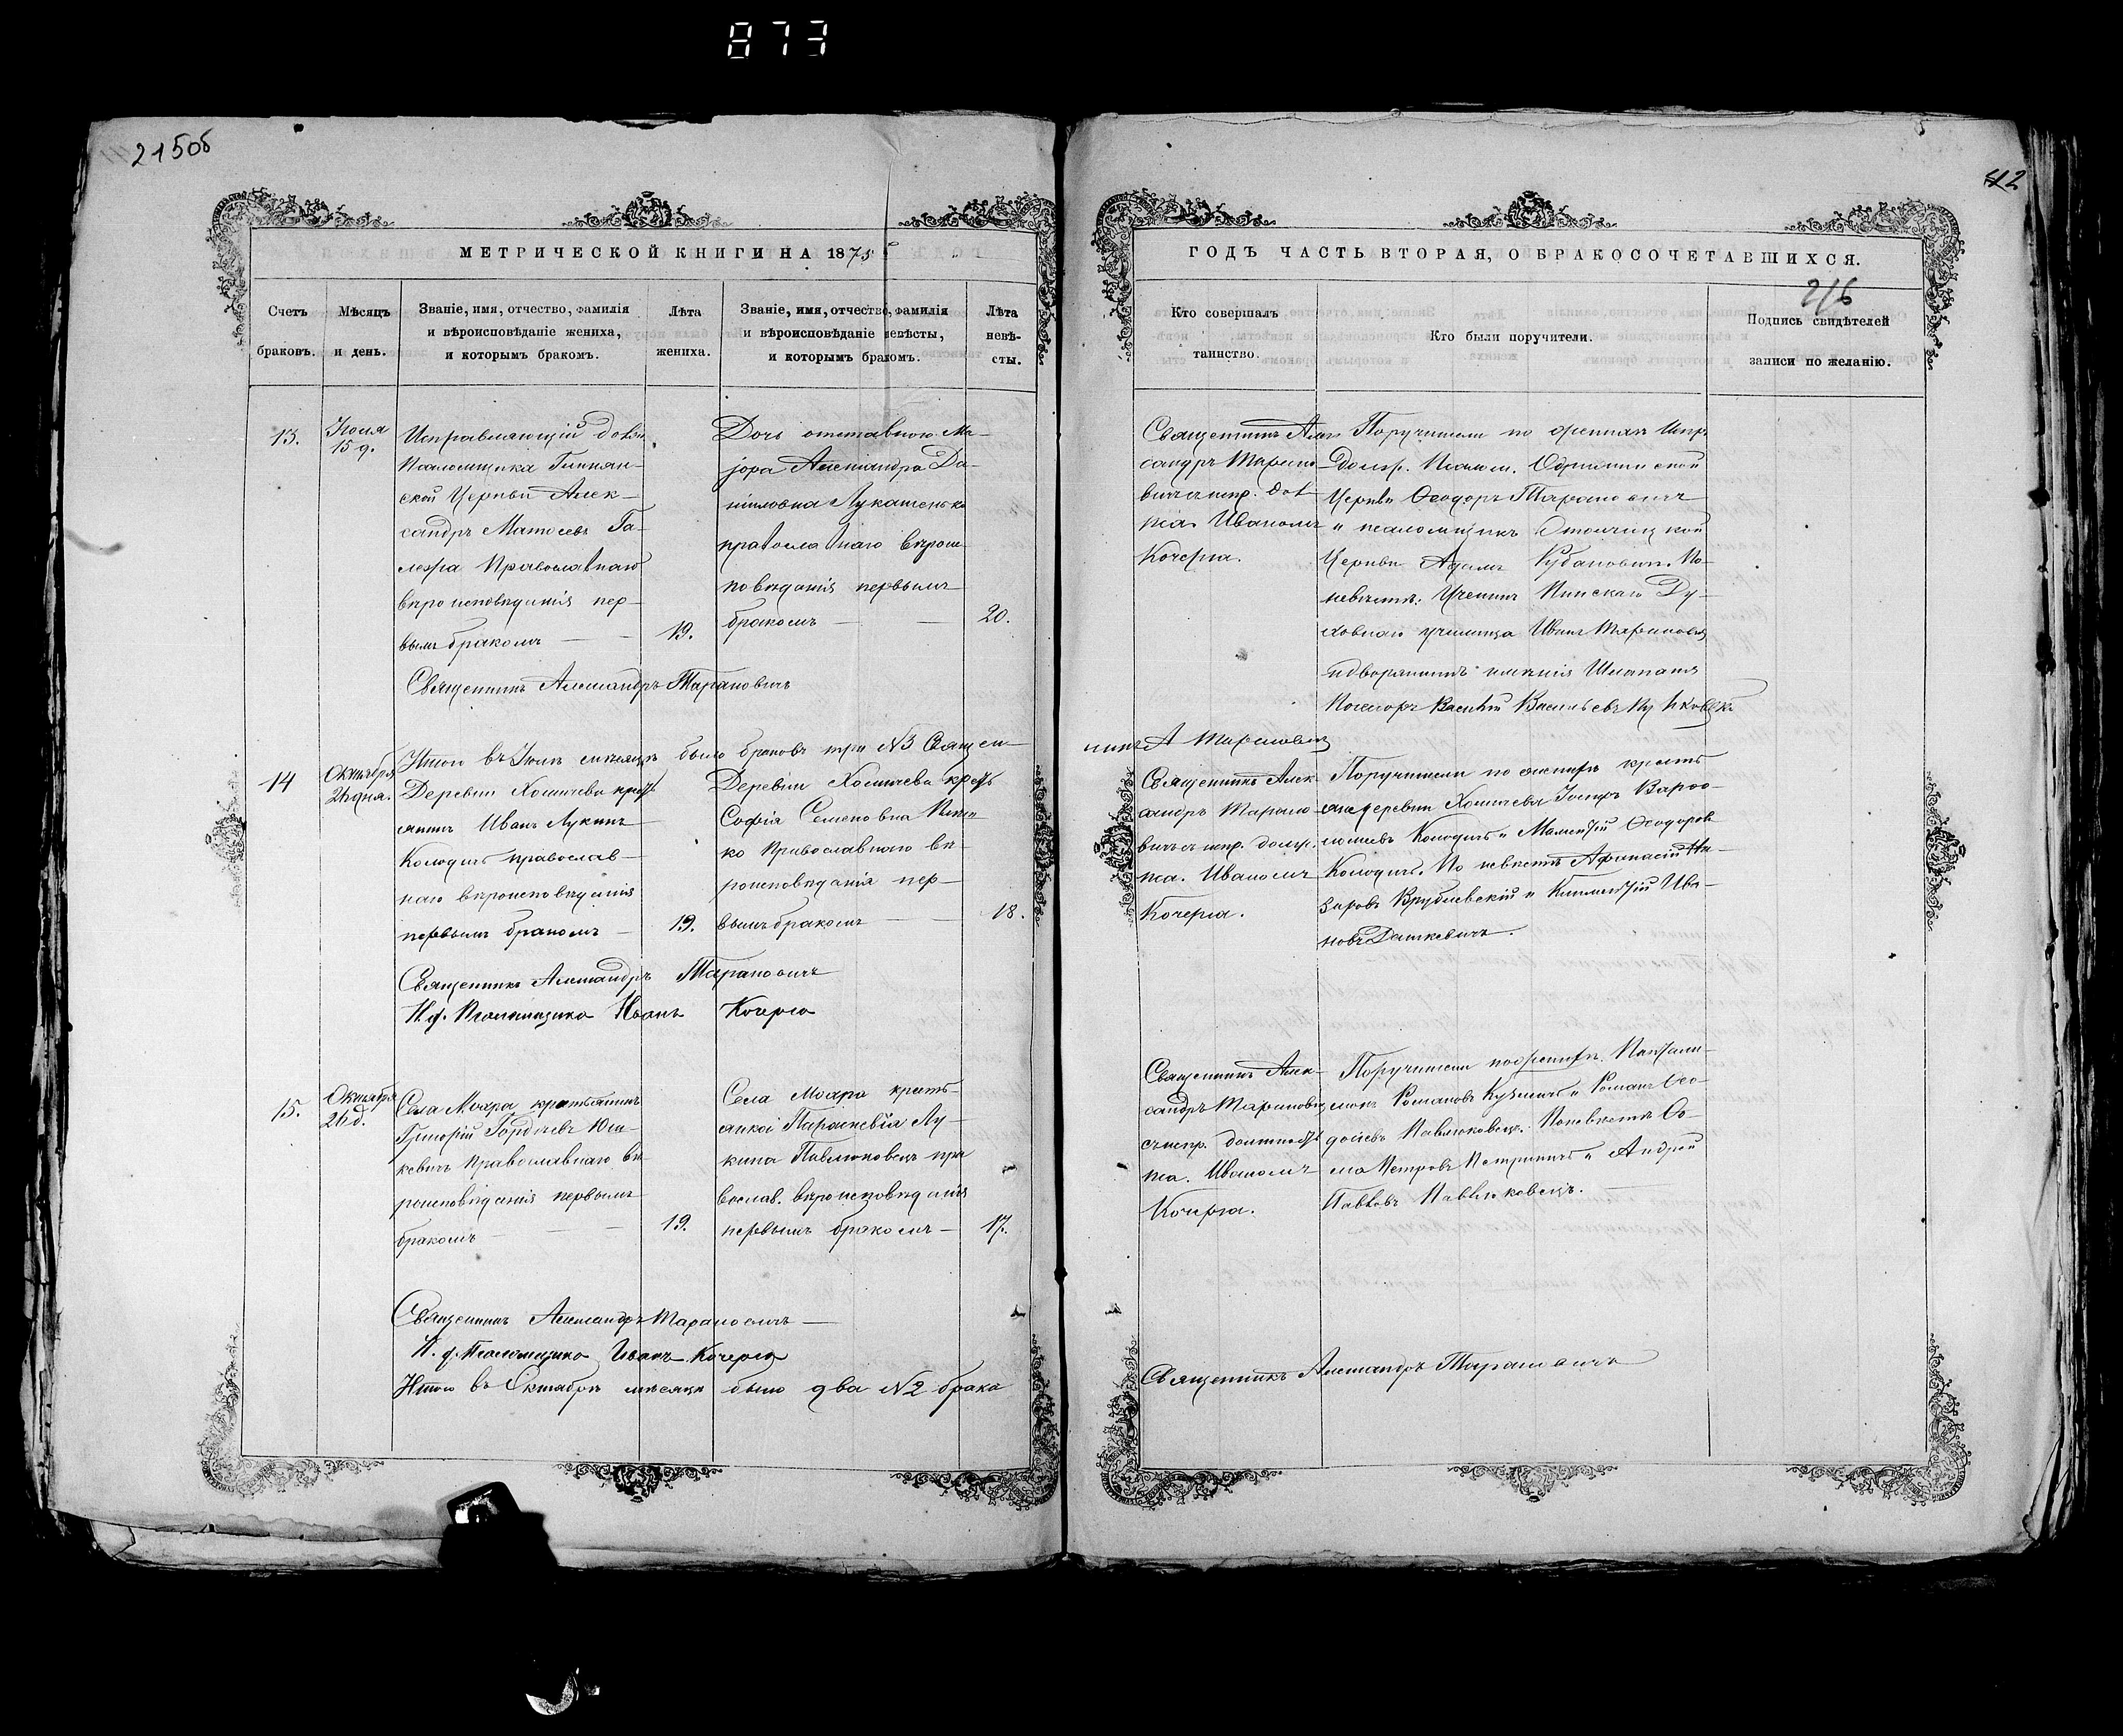 873
215об
42
МЕТРИЧЕСКОЙ КНИГИ НА 1875
Счетъ
браковъ.
Мѣсяцъ
и день.
Званіе, имя, отчество, фамилія
и вѣроисповѣданіе жениха,
и которымъ бракомъ.
Лѣта
жениха.
Званіе, имя, отчество, фамилія
и вѣроисповѣданіе невѣсты,
и которымъ бракомъ.
Лѣта
невѣ-
сты.
13.
Исправляющій
Псаломщика
ской Церкви Алек-
сандръ
Православнаго
вѣроисповѣданія пер-
вымъ бракомъ
19.
Дочь отставного Ма-
іора Александра Да-
ниловна Лукашенько
православнаго вѣроис-
повѣданія первымъ
бракомъ
20.
Священникъ Александръ Тарановичъ
Итого въ мѣсяцѣ было браковъ три №3 Священ-
14
Октября
26 дня.
Деревни Хомичева крест
янинъ Иванъ Лукинъ
Колодичъ православ-
наго вѣроисповѣданія
первымъ бракомъ
19.
Деревни Хомичева крест
Софія Семеновна
ко Православнаго вѣ-
роисповѣданія пер-
вымъ бракомъ
18.
Священникъ Александръ Тарановичъ
И. д. Псаломщика Иванъ Кочерга
15.
Октября
26 д.
Села Мохра крестьянинъ
Григорій Гордѣевъ Юш-
кевичъ Православнаго вѣ-
роисповѣданія первымъ
бракомъ
19.
Села Мохра крестъ-
янка Параскевія Лу-
кина Павлюковецъ пра
вослав. вѣроисповѣданія
первымъ бракомъ
17.
Священникъ Александръ Тарановичъ
И. д. Псаломщика Иванъ Кочерга
Итого въ Октябрѣ мѣсяцѣ было два №2 брака
ГОДЪ ЧАСТЬ ВТОРАЯ, О БРАКОСОЧЕТАВШИХСЯ.
216
Кто совершалъ
таинство.
Кто были поручители.
Подпись свидѣтелей
записи по желанію.
Священникъ Алек
сандръ Тарано
вичъ с испр.
пса. Иваномъ
Кочерга.
Поручители по женихѣ Испр
Церкви Ѳеодоръ Тарановичъ
и псаломщикъ
Церкви Адамъ По
невѣстѣ: Ученикъ Пинскаго Ду-
ховнаго училища Иванъ Тарановичъ
и дворянинъ имѣнія
Василій Васильевъ
никъ А Тарановичъ
Священникъ Алек
сандръ Тарано
вичъ с испр. долж.
пса. Иваномъ
Кочерга.
Поручители по женихѣ крестъ
яне деревни Хомичева Варѳо-
ломеевъ Колодичъ и Ѳеодоровъ
Колодичъ. По невѣстѣ Афанасій На-
заровъ Врублевскій и Климентій Ива-
новъ Дашкевичъ.
Священникъ Алек-
сандръ Тарановичъ
съ испр. должность
пса. Иваномъ
Кочерга.
Поручители по женихѣ Пантели-
монъ Романовъ Кузьмичъ и Романъ Ѳео-
Павлюковецъ. По невѣстѣ Ѳо-
ма Петровъ и Андрей
Павловъ Павлюковецъ.
Священникъ Александръ Тарановичъ